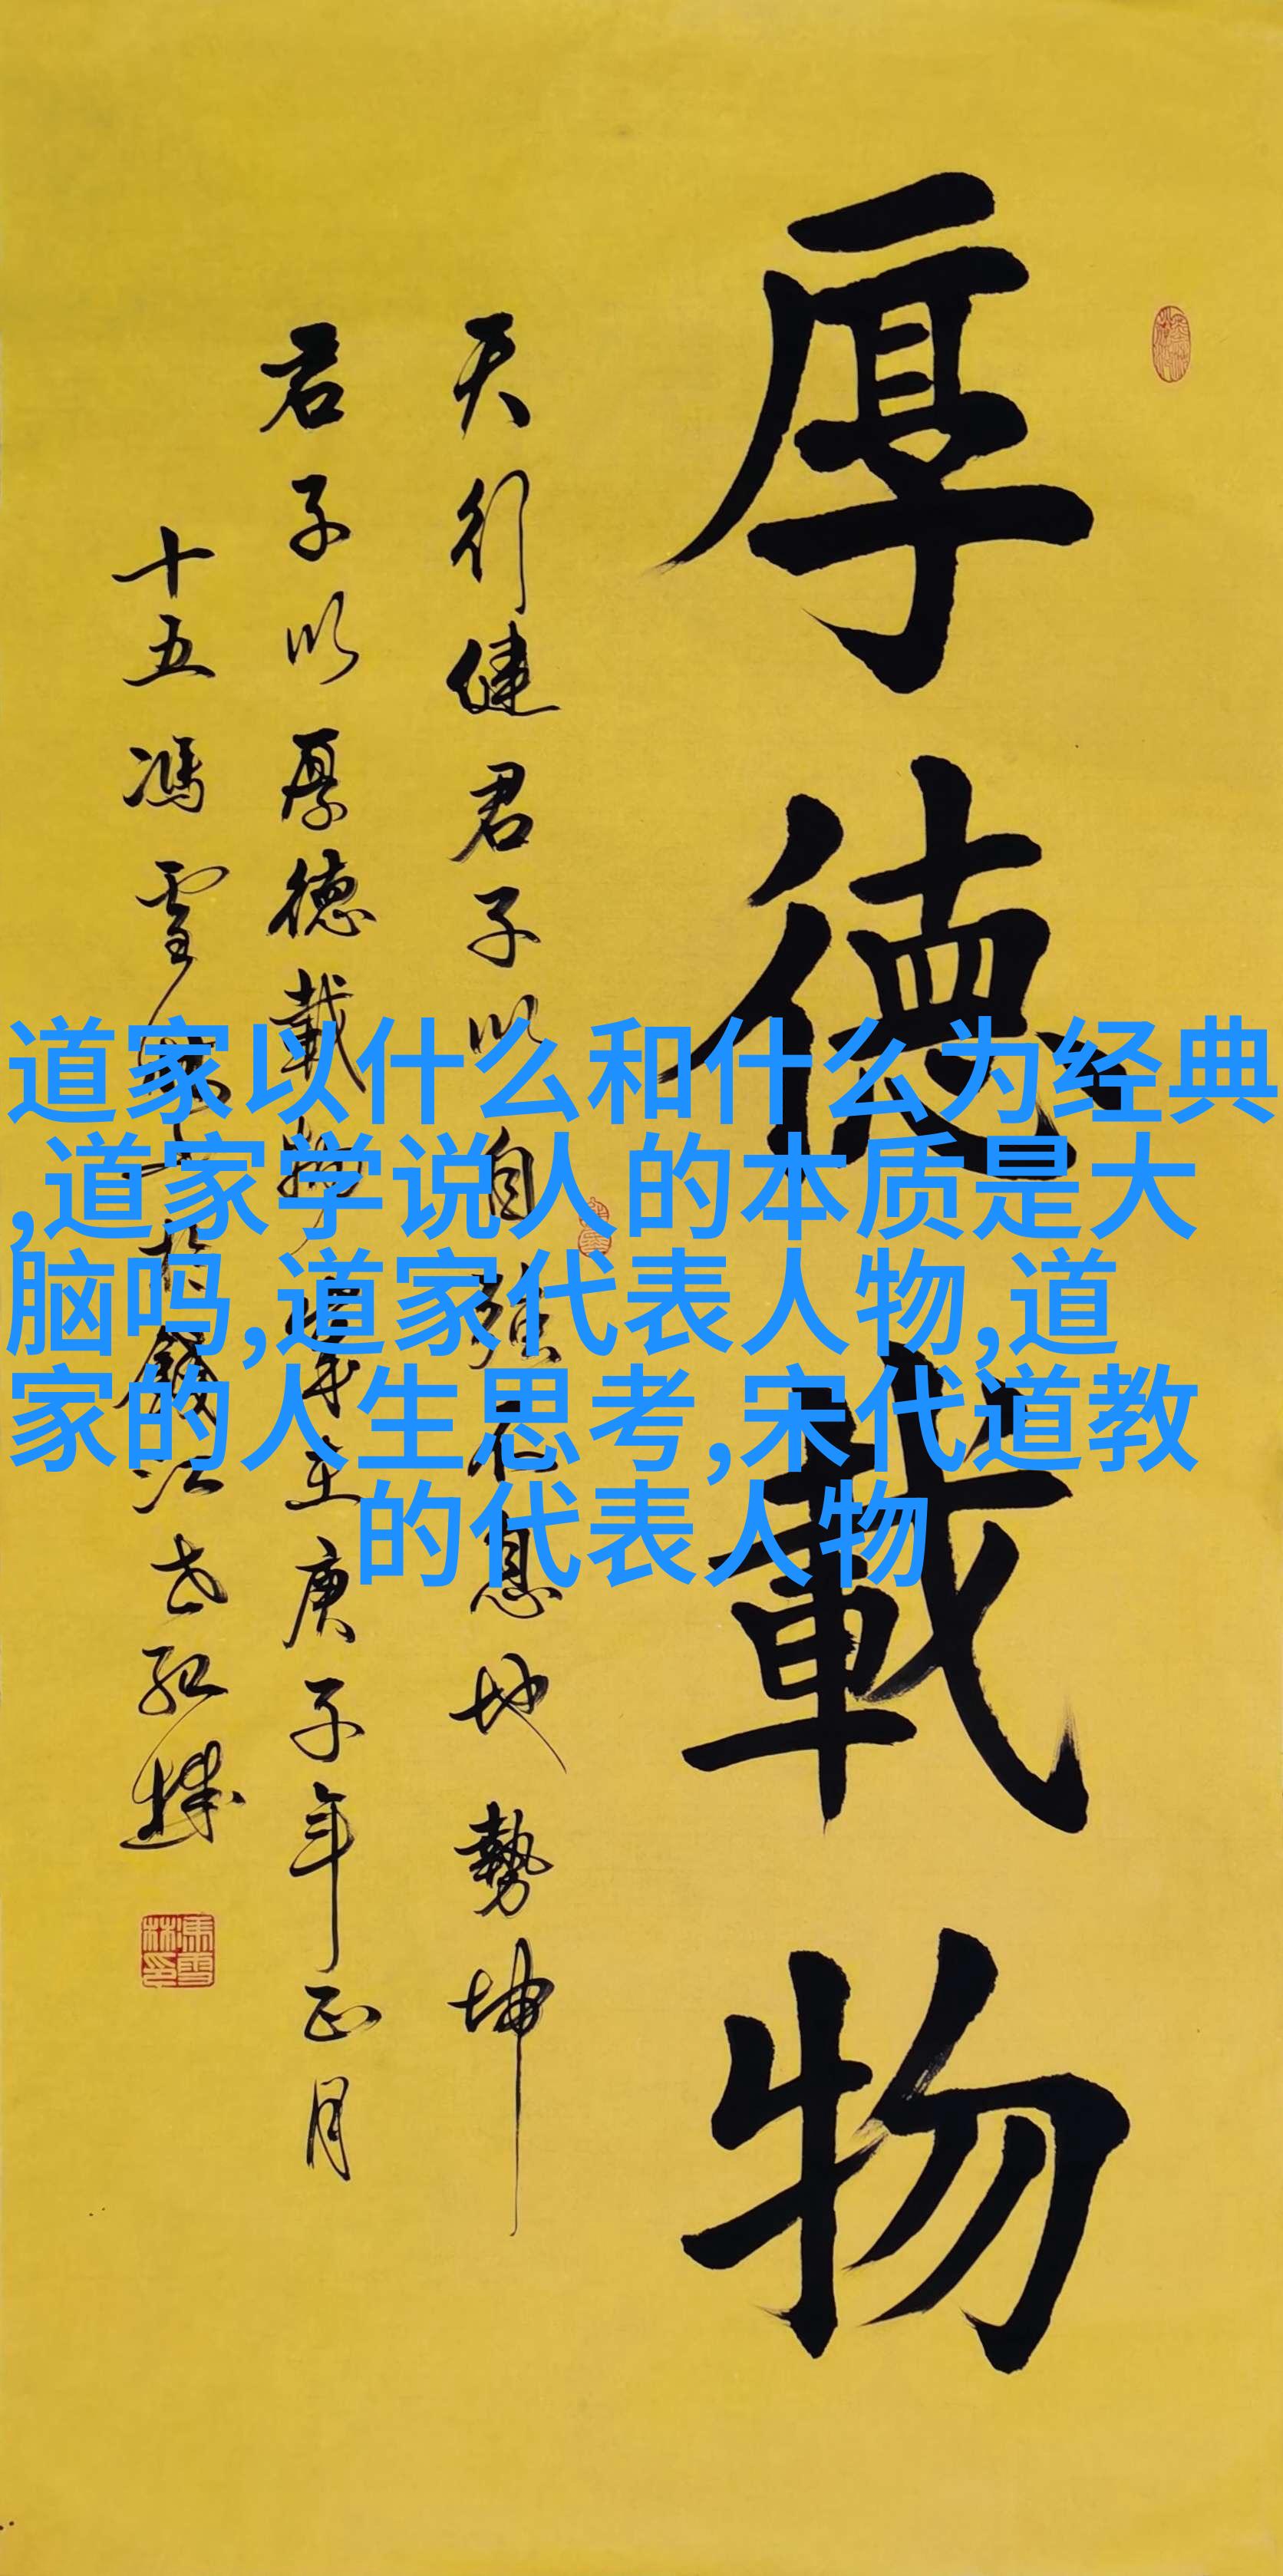 厚德載物
天行健君子以自強不息地勢坤
君子以厚德載物歲在庚子年正月
十五馮雪林書於錢江
道家以什么和什么为经典
,道家学说人的本质是大
脑吗,道家代表人物,道
家的人生思考,宋代道教
的代表人物
馮雪林印